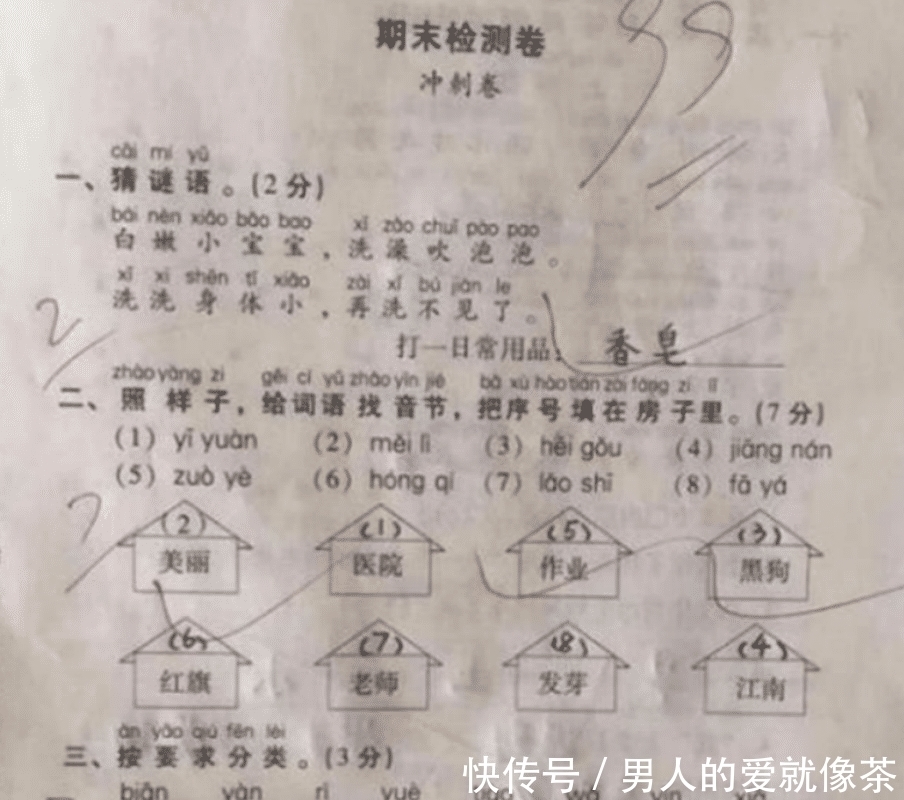 期末检测卷
99
冲刺卷
cāi mí yǔ
一、猜谜语。(2分)
bái nèn xiǎo bǎo bao xǐ zǎo chuī pào pao
白嫩小宝宝，洗澡吹泡泡。
xǐ xi shēn tǐ xiǎo zài xǐ bú jiàn le
洗洗身体小，再洗不见了。
2
打一日常用品：香皂
zhào yàng zi gěi cí yǔ zhǎo yīn jié bǎ xù hào tián zài fáng zi lǐ
二、照样子，给词语找音节，把序号填在房子里。(7分)
(1) yī yuàn (2) měi lì (3) hēi gǒu (4) jiāng nán
(5) zuò yè (6) hóng qí (7) lǎo shī (8) fā yá
7
(2) (1) (5) (3)
美丽 医院 作业 黑狗
(6) (7) (8) (4)
红旗 老师 发芽 江南
àn yāo qiú fēn lèi
三、按要求分类。(3分)
biān yàn rì yuè
快传号 / 男人的爱就像茶